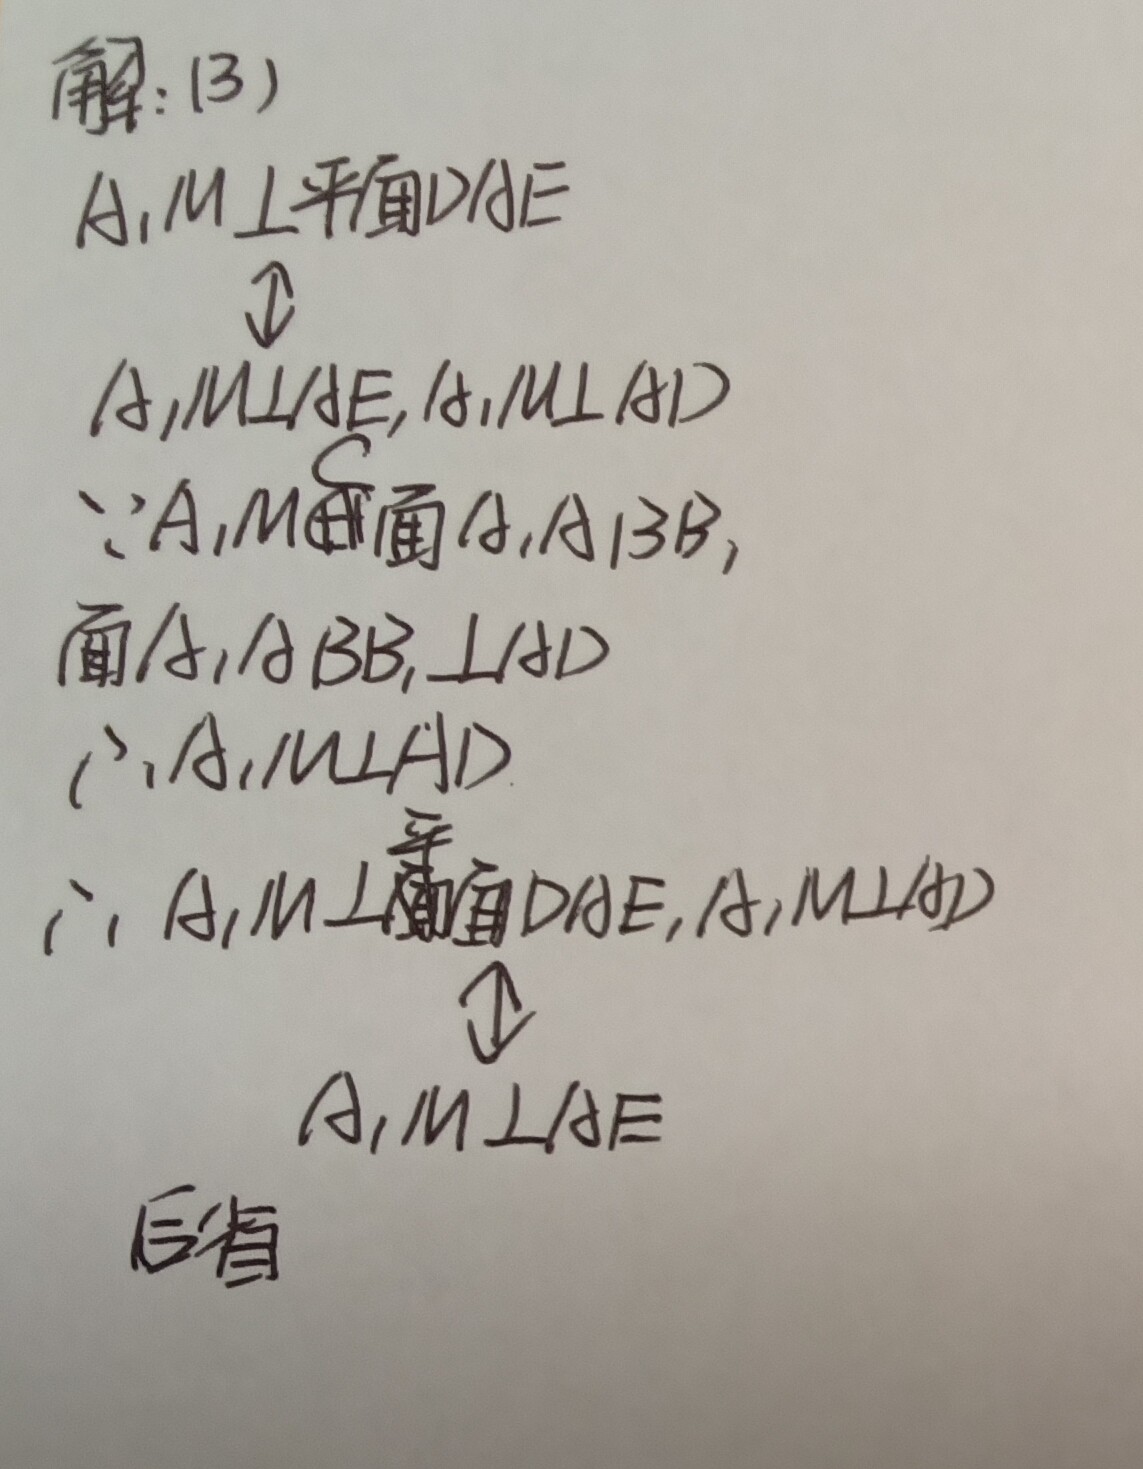 解:(3)
A₁M⊥平面DAE
↕
A₁M⊥AE,A₁M⊥AD
∵A₁M⊂面A₁ABB₁
面A₁ABB₁⊥AD
∴A₁M⊥AD
∴A₁M⊥平面DAE,A₁M⊥AD
↕
A₁M⊥AE
后省